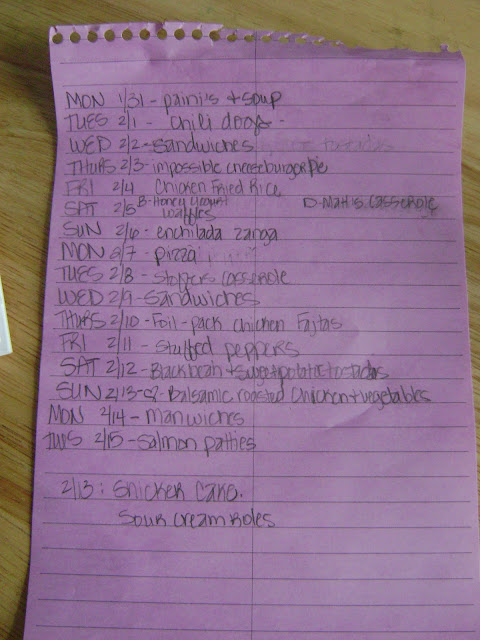 MON 1/31 - panini's + soup
TUES 2/1 - chili dogs -
WED 2/2 - sandwiches
THURS 2/3 - impossible cheeseburger pie
FRI 2/4 Chicken Fried Rice
SAT 2/5 B-Honey Yogurt waffles D-Matt's Casserole
SUN 2/6 - enchilada zanga
MON 2/7 - pizza
TUES 2/8 - casserole
WED 2/9 - sandwiches
THURS 2/10 - Foil-pack chicken Fajitas
FRI 2/11 - Stuffed peppers
SAT 2/12 - Black bean + sweet potato tostadas
SUN 2/13 - Balsamic roasted Chicken + vegetables
MON 2/14 - manwiches
TUES 2/15 - salmon patties
2/13: Snicker Cake.
Sour cream Roles